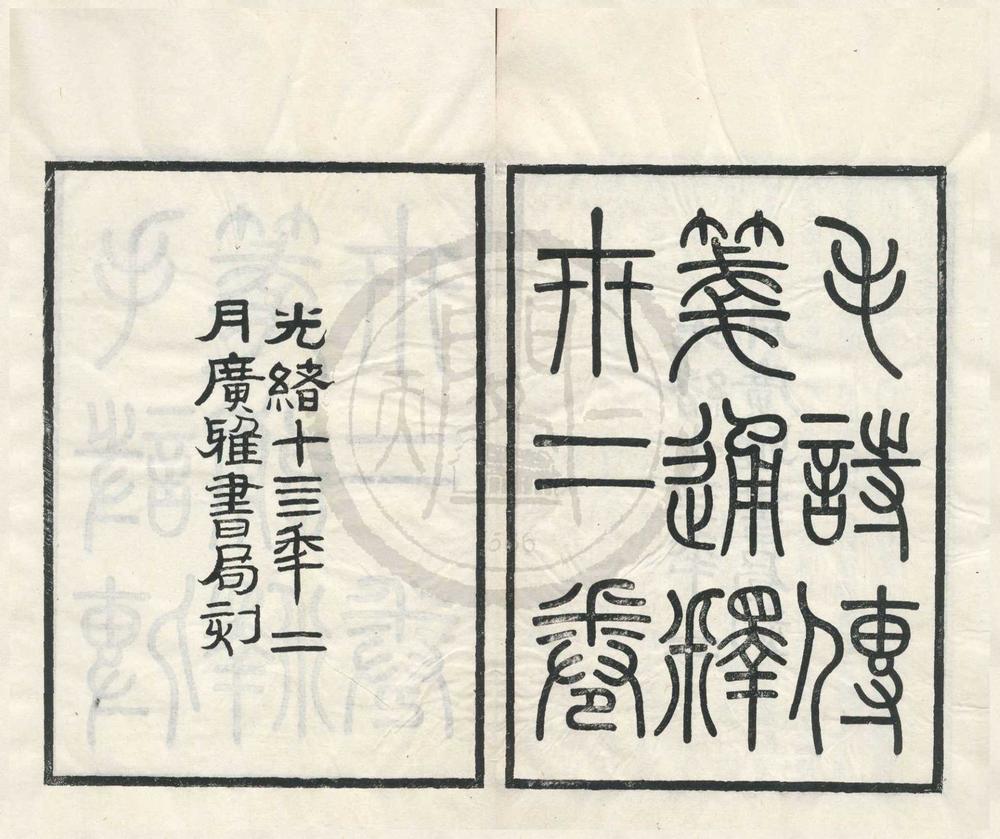 毛詩傳
箋通釋
卅二卷
光緒十三年二
月廣雅書局刻
天一閣
1566